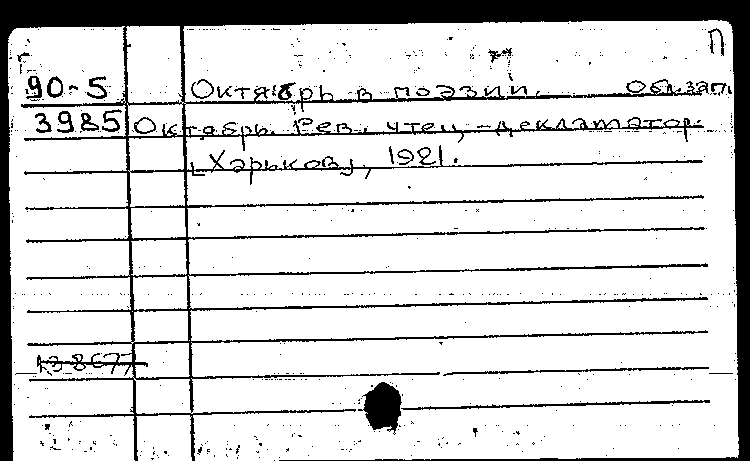 П
90-5 Октябрь в поэзии. Обл.загл.
3985 Октябрь. Рев. чтец-декламатор.
[Харьков], 1921.